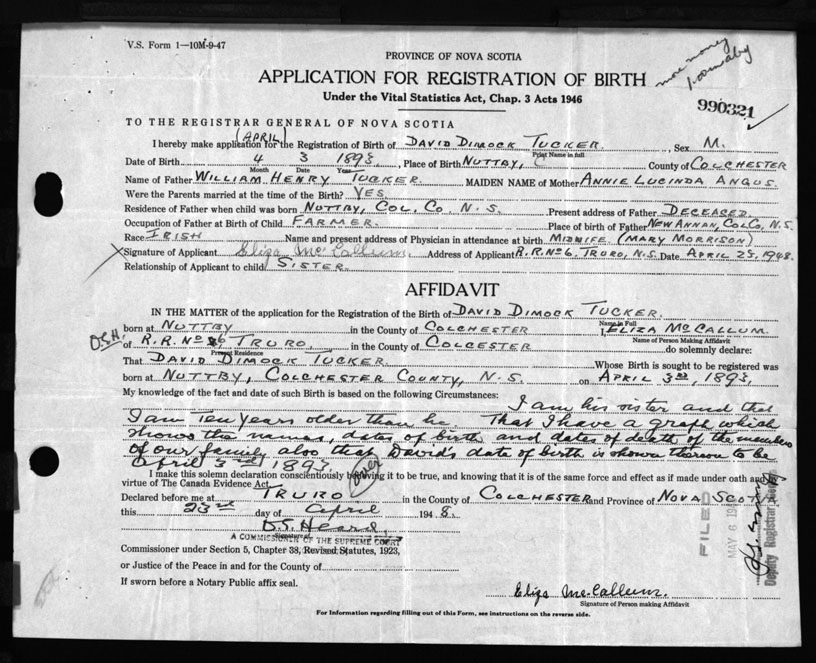 V.S. Form 1—10M-9-47
PROVINCE OF NOVA SCOTIA
more money
APPLICATION FOR REGISTRATION OF BIRTH
Under the Vital Statistics Act, Chap. 3 Acts 1946
990321
TO THE REGISTRAR GENERAL OF NOVA SCOTIA
(APRIL)
I hereby make application for the Registration of Birth of DAVID DIMOCK TUCKER. , Sex M.
Print Name in full
Date of Birth 4 3 1893 , Place of Birth NUTTBY, County of COLCHESTER
Month Date Year
Name of Father WILLIAM HENRY TUCKER. MAIDEN NAME of Mother ANNIE LUCINDA ANGUS.
Were the Parents married at the time of the Birth? YES
Residence of Father when child was born NUTTBY, COL. CO. N.S. Present address of Father DECEASED
Occupation of Father at Birth of Child FARMER. Place of birth of Father NEW ANNAN, COL CO, N.S.
Race IRISH Name and present address of Physician in attendance at birth MIDWIFE (MARY MORRISON)
Signature of Applicant Eliza McCallum. Address of Applicant R.R. NO 6, TRURO, N.S. Date APRIL 23, 1948.
Relationship of Applicant to child SISTER.
AFFIDAVIT
IN THE MATTER of the application for the Registration of the Birth of DAVID DIMOCK TUCKER.
Name in Full
born at NUTTBY in the County of COLCHESTER I, ELIZA MCCALLUM.
Name of Person Making Affidavit
D.S.H.
of R.R. NO 6 TRURO, in the County of COLCESTER do solemnly declare:
Present Residence
That DAVID DIMOCK TUCKER Whose Birth is sought to be registered was
born at NUTTBY, COLCHESTER COUNTY, N.S. on APRIL 3rd, 1893,
My knowledge of the fact and date of such Birth is based on the following Circumstances:
I am his sister and that
I am ten years older than he. That I have a graph which
shows the names, dates of birth and dates of death of the members
of our family also that David's date of birth is shown thereon to be
April 3rd 1893
over
I make this solemn declaration conscientiously believing it to be true, and knowing that it is of the same force and effect as if made under oath and by
virtue of The Canada Evidence Act.
Declared before me at TRURO in the County of COLCHESTER and Province of NOVA SCOTIA
this 23rd day of April 1948.
D.S. Heard,
Signature of
A COMMISSIONER OF THE SUPREME COURT
Commissioner under Section 5, Chapter 38, Revised Statutes, 1923,
or Justice of the Peace in and for the County of
If sworn before a Notary Public affix seal.
FILED
MAY 6
Deputy Registrar
Eliza McCallum.
Signature of Person making Affidavit
For Information regarding filling out of this Form, see instructions on the reverse side.